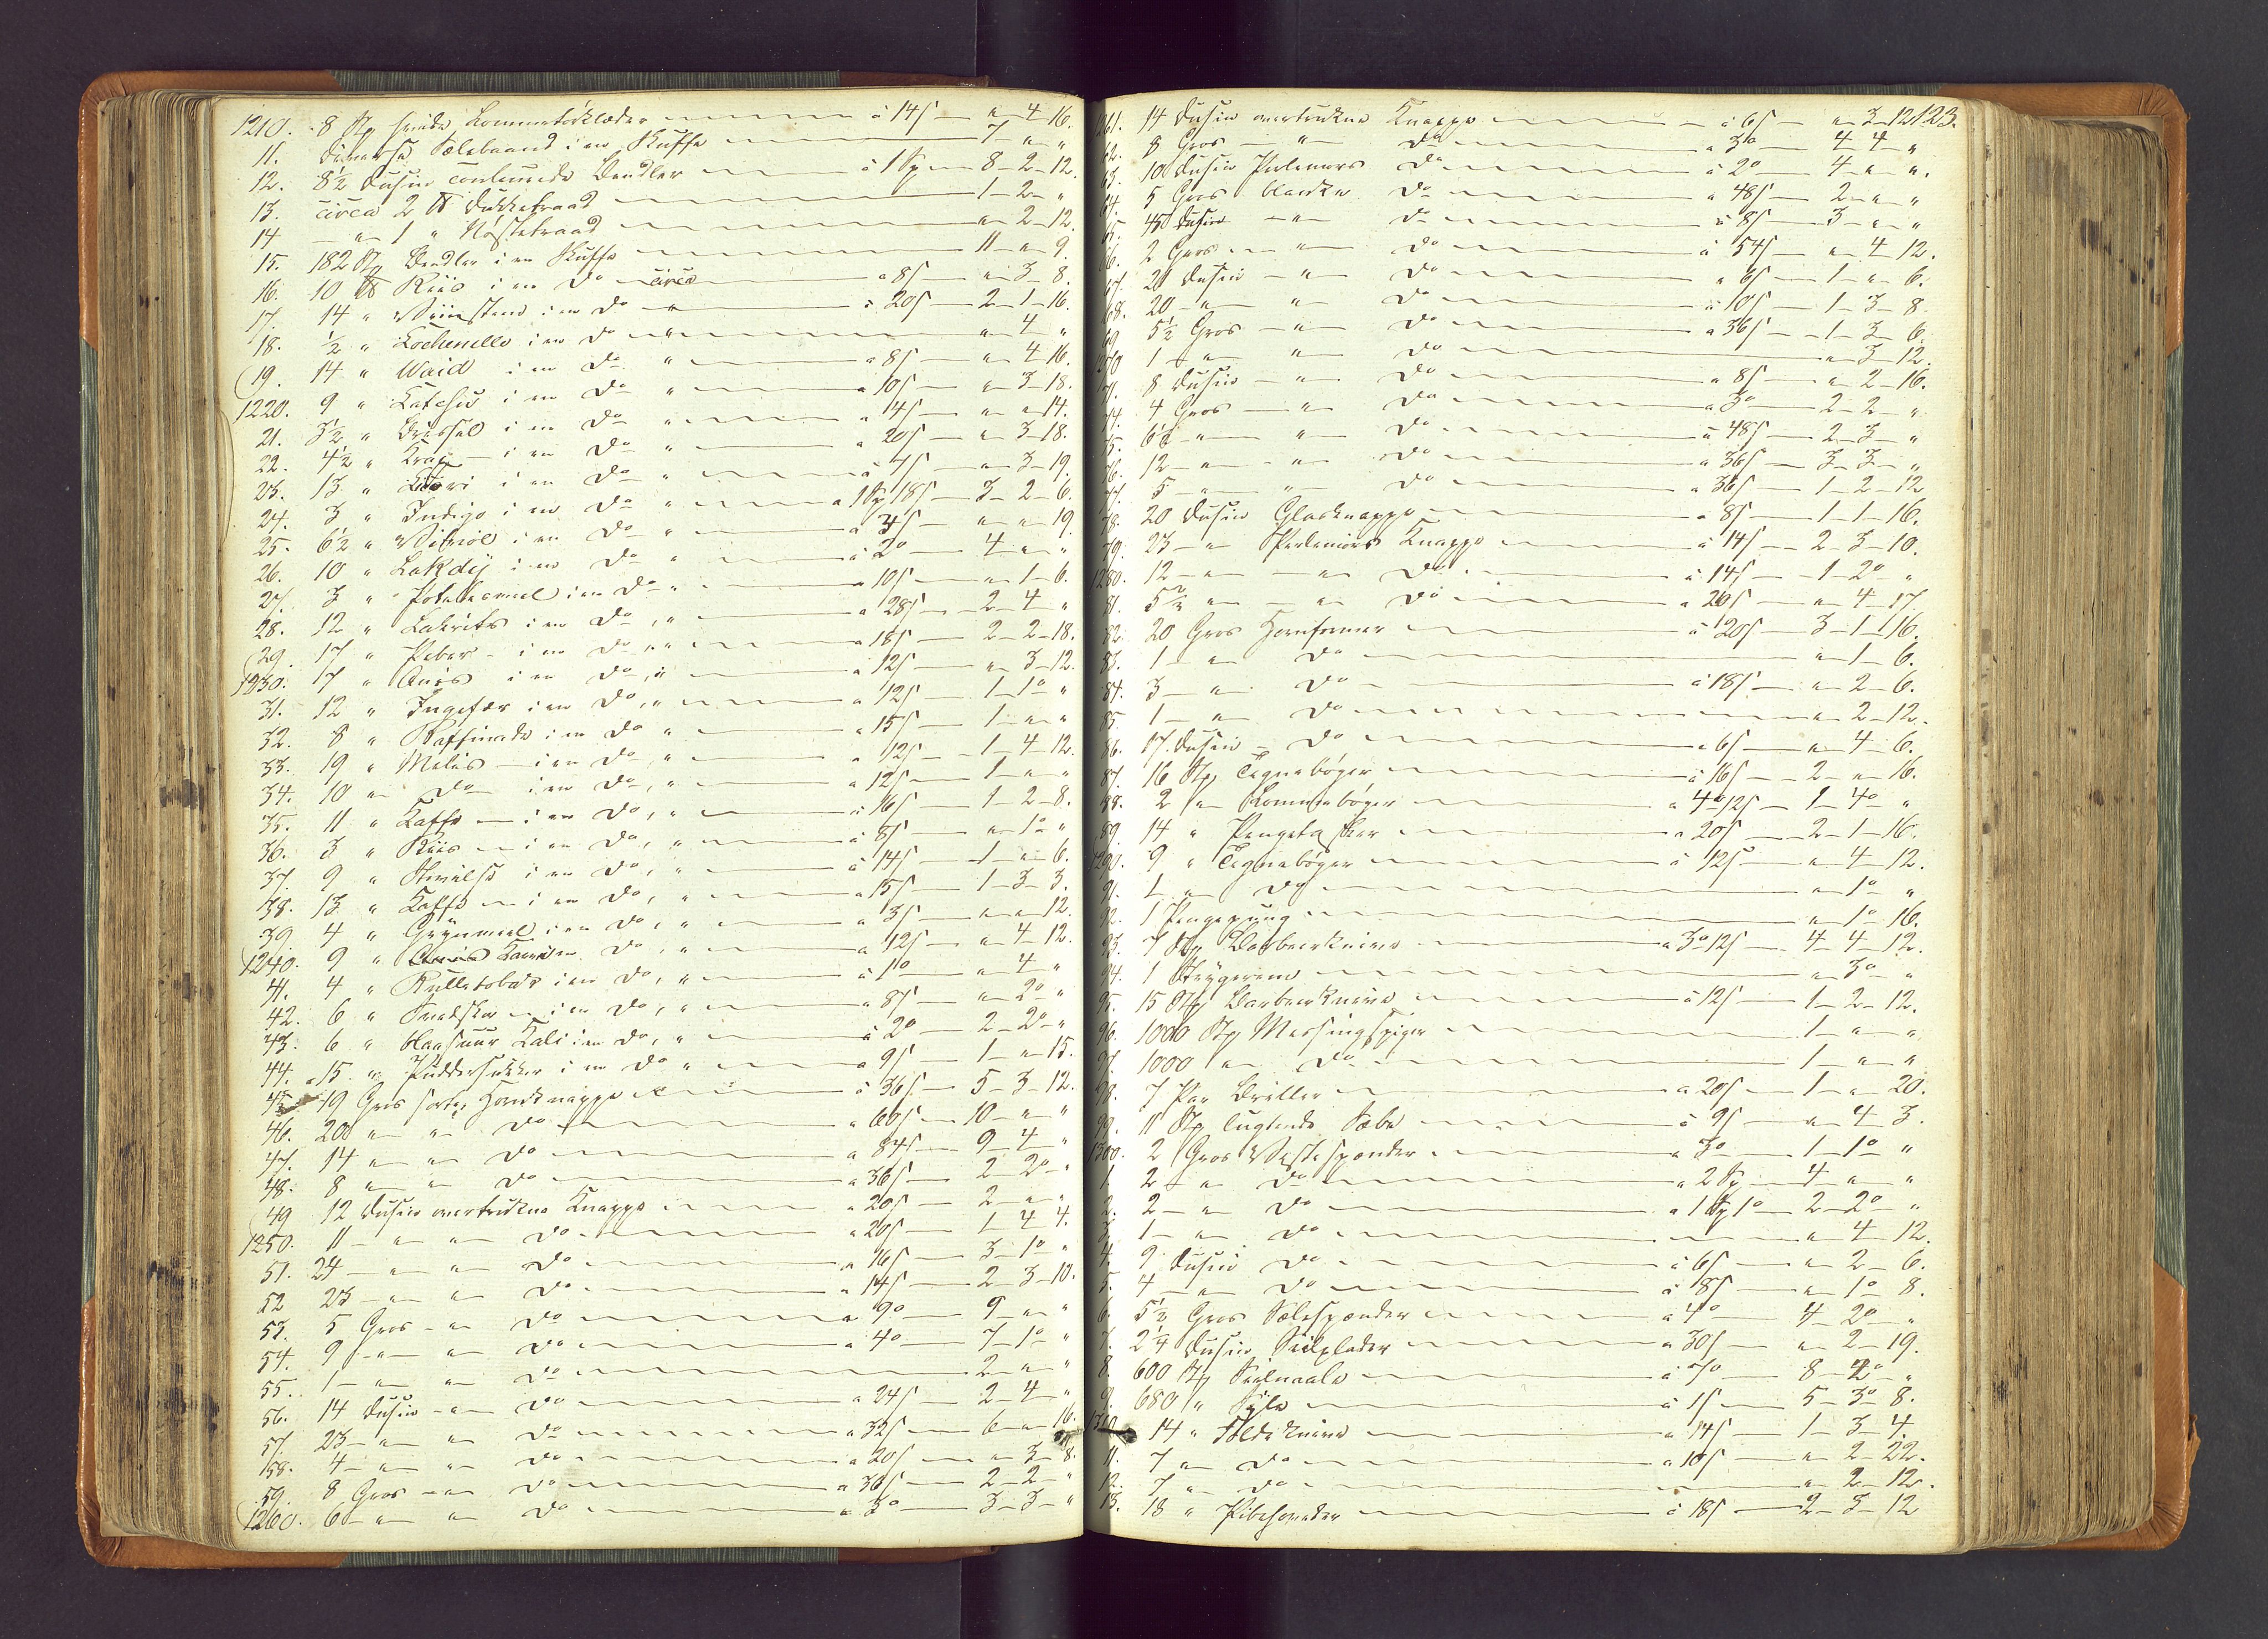 1210. 8 Stk hvide Lommetørklæder à 14 s „ 4 16.
11. Diverse Sælebaand i en Skuffe 7 „ „
12. 8½ Dusin couleurede Bendler à 1 Sp 8-2-12.
13. circa 2 ℔ Dukketraad 1-2-„
14 — „ 1 „ Nøstetraad „ 2-12.
15. 182 Stk Bendler i en Skuffe 11-„-9.
16. 10 ℔ Riis i en Do circa à 8 s „ 3-8.
17. 14 „ Viinsteen i en Do „ à 20 s 2-1-16.
18. ½ „ Kochenille i en Do „ „ 4 „
19. 14 „ Waid i en Do „ à 8 s „ 4-16.
1220. 9 „ Katchu i en Do „ à 10 s „ 3-18.
21. 3½ „ i en Do „ à 14 s „ „ 14.
22. 4½ „ Krap i en Do „ à 20 s „ 3-18.
23. 13 „ i en Do „ à 7 s „ 3-19.
24. 3 „ Indigo i en Do „ à 1 Sp 18 s 3-2-6.
25. 6½ „ Vitriol i en Do „ à 3 s „ „ 19.
26. 10 „ Lakdij i en Do „ à 2 o 4 „ „
27. 3 „ Potetesmeel i en Do „ à 10 s „ 1-6.
28. 12 „ Lakrits i en Do „ à 28 s 2-4-„
29. 17 „ Peber i en Do „ à 18 s 2-2-18.
1230. 7 „ Anis i en Do „ à 12 s „ 3-12.
31. 12 „ Ingefær i en Do „ à 12 s 1-1 o „
32. 8 „ Raffinade i en Do „ à 15 s 1 „ „
33. 19 „ Melis i en Do „ à 12 s 1-4-12.
34. 10 „ Do i en Do „ à 12 s 1 „ „
35. 11 „ Kaffe i en Do „ à 16 s 1-2-8.
36. 3 „ Riis i en Do „ à 8 s „ 1 o „
37. 9 „ Stivelse i en Do „ à 14 s 1 „ 6.
38. 13 „ Kaffe i en Do „ à 15 s 1-3-3.
39. 4 „ Grynmeel i en Do „ à 3 s „ „ 12.
1240. 9 „ Karve i en Do „ à 12 s „ 4-12.
41. 4 „ Rulletobak i en Do „ à 1 o „ 4 „
42. 6 „ Svedsker i en Do „ à 8 s „ 2 o „
43. 6 „ blaasuur Kali i en Do „ à 2 o 2-2 o „
44. 15 „ Puddersukker i en Do „ à 9 s 1 „ 15.
45 19 Gros sorte Hornknappe à 36 s 5-3-12.
46. 20 „ „ Do à 60 s 10 „ „
47. 14 „ „ Do à 84 s 9-4 „
48. 8 „ „ Do à 36 s 2-2 o „
49 12 Dusin overtrukne Knappe à 20 s 2 „ „
1250. 11 „ „ Do à 20 s 1-4 4.
51. 24 „ „ Do à 16 s 3-1 o „
52 23 „ „ Do à 14 s 2-3-10.
53. 5 Gros „ Do à 9 o 9 „ „
54. 9 „ „ Do à 4 o 7-1 o „
55. 1 „ „ Do 2 „ „
56. 14 Dusin „ Do à 24 s 2-4 „
57. 23 „ „ Do à 32 s 6 „ 16.
58. 4 „ „ Do à 20 s „ 3-8.
59. 8 Gros „ Do à 36 s 2-2 „
1260. 6 „ „ Do à 3 o 3-3 „
123.
61. 14 Dusin overtrukne Knappe à 6 s „ 3-12
62. 8 Gros „ Do à 3 o 4 4 „
63. 10 Dusin Perlemors Do à 2 o 4 „ „
64. 5 Gros blanke Do à 48 s 2 „ „
65. 45 Dusin „ Do à 8 s 3 „ „
66. 2 Gros „ Do à 54 s „ 4 12.
67. 21 Dusin „ Do à 6 s 1 „ 6.
68. 20 „ „ Do à 10 s 1-3-8.
69 5½ Gros „ Do à 36 s 1-3-6.
1270 1 „ „ Do „ 3-12.
71. 8 Dusin „ Do à 8 s „ 2-16.
74. 4 Gros „ Do à 3 o 2-2 „
75. 6½ „ „ Do à 48 s 2-3 „
76. 12 „ „ Do à 36 s 3-3 „
77. 5 „ „ Do à 36 s 1-2-12
78. 20 Dusin Glasknappe à 8 s 1-1-16.
79. 23 „ Perlemors Knappe à 14 s 2-3-10.
1280. 12 „ „ Do à 14 s 1-2 o „
81. „ „ Do à 20 s „ 4-17.
82. 20 Gros Hornformer à 20 s 3-1-16.
83. 1 „ Do „ 1-6.
84. 3 „ Do à 18 s „ 2-6.
85. 1 „ Do „ 2-12.
86. 17 Dusin Do à 6 s „ 4-6.
87. 16 Stk Tegnebøger à 16 s 2 „ 16.
88. 2 „ Lommebøger à 4 o 12 s 1-4 o „
89. 14 „ Pengetasker à 20 s 2-1-16.
1290. 9 „ Tegnebøger à 12 s „ 4-12.
91. 1 „ Do „ 1 o „
92. 1 Pengepung „ 1 o 16.
93. 7 Stk Barbeerknive à 3 o 12 s 4-4-12.
94. 1 Strygerem „ 3 o „
95. 15 Stk Barbeerknive à 12 s 1-2-12.
96. 1000 Stk Messingspiger 1 „ „
97. 1000 „ Do 1 „ „
98. 7 Par Briller à 20 s 1 „ 20.
99. 11 Stk lugtende Sæbe à 9 s „ 4 3.
1300. 2 Gros Vestespænder à 3 o 1-1 o „
1. 2 „ Do à 2 Sp 4 „ „
2. 2 „ Do à 1 Sp 1 o 2-2 o „
3. 1 „ Do „ 4 12.
4. 9 Dusin Do à 6 s „ 2-6.
5. 4 „ Do à 8 s „ 1 o 8.
6. 5½ Gros Sælespænder à 4 o 4-2 o „
7. 2¼ Dusin à 30 s „ 2-19.
8. 600 Stk Seilnaale à 7 o 8-2 o „
9. 680 „ Syle à 1 s 5-3 o 8.
1310. 14 „ Foldeknive à 14 s 1-3-4.
11. 7 „ Do à 10 s „ 2-22.
12. 7 „ Do „ 2-12.
13. 18 „ Pibehoveder à 18 s 2-3-12